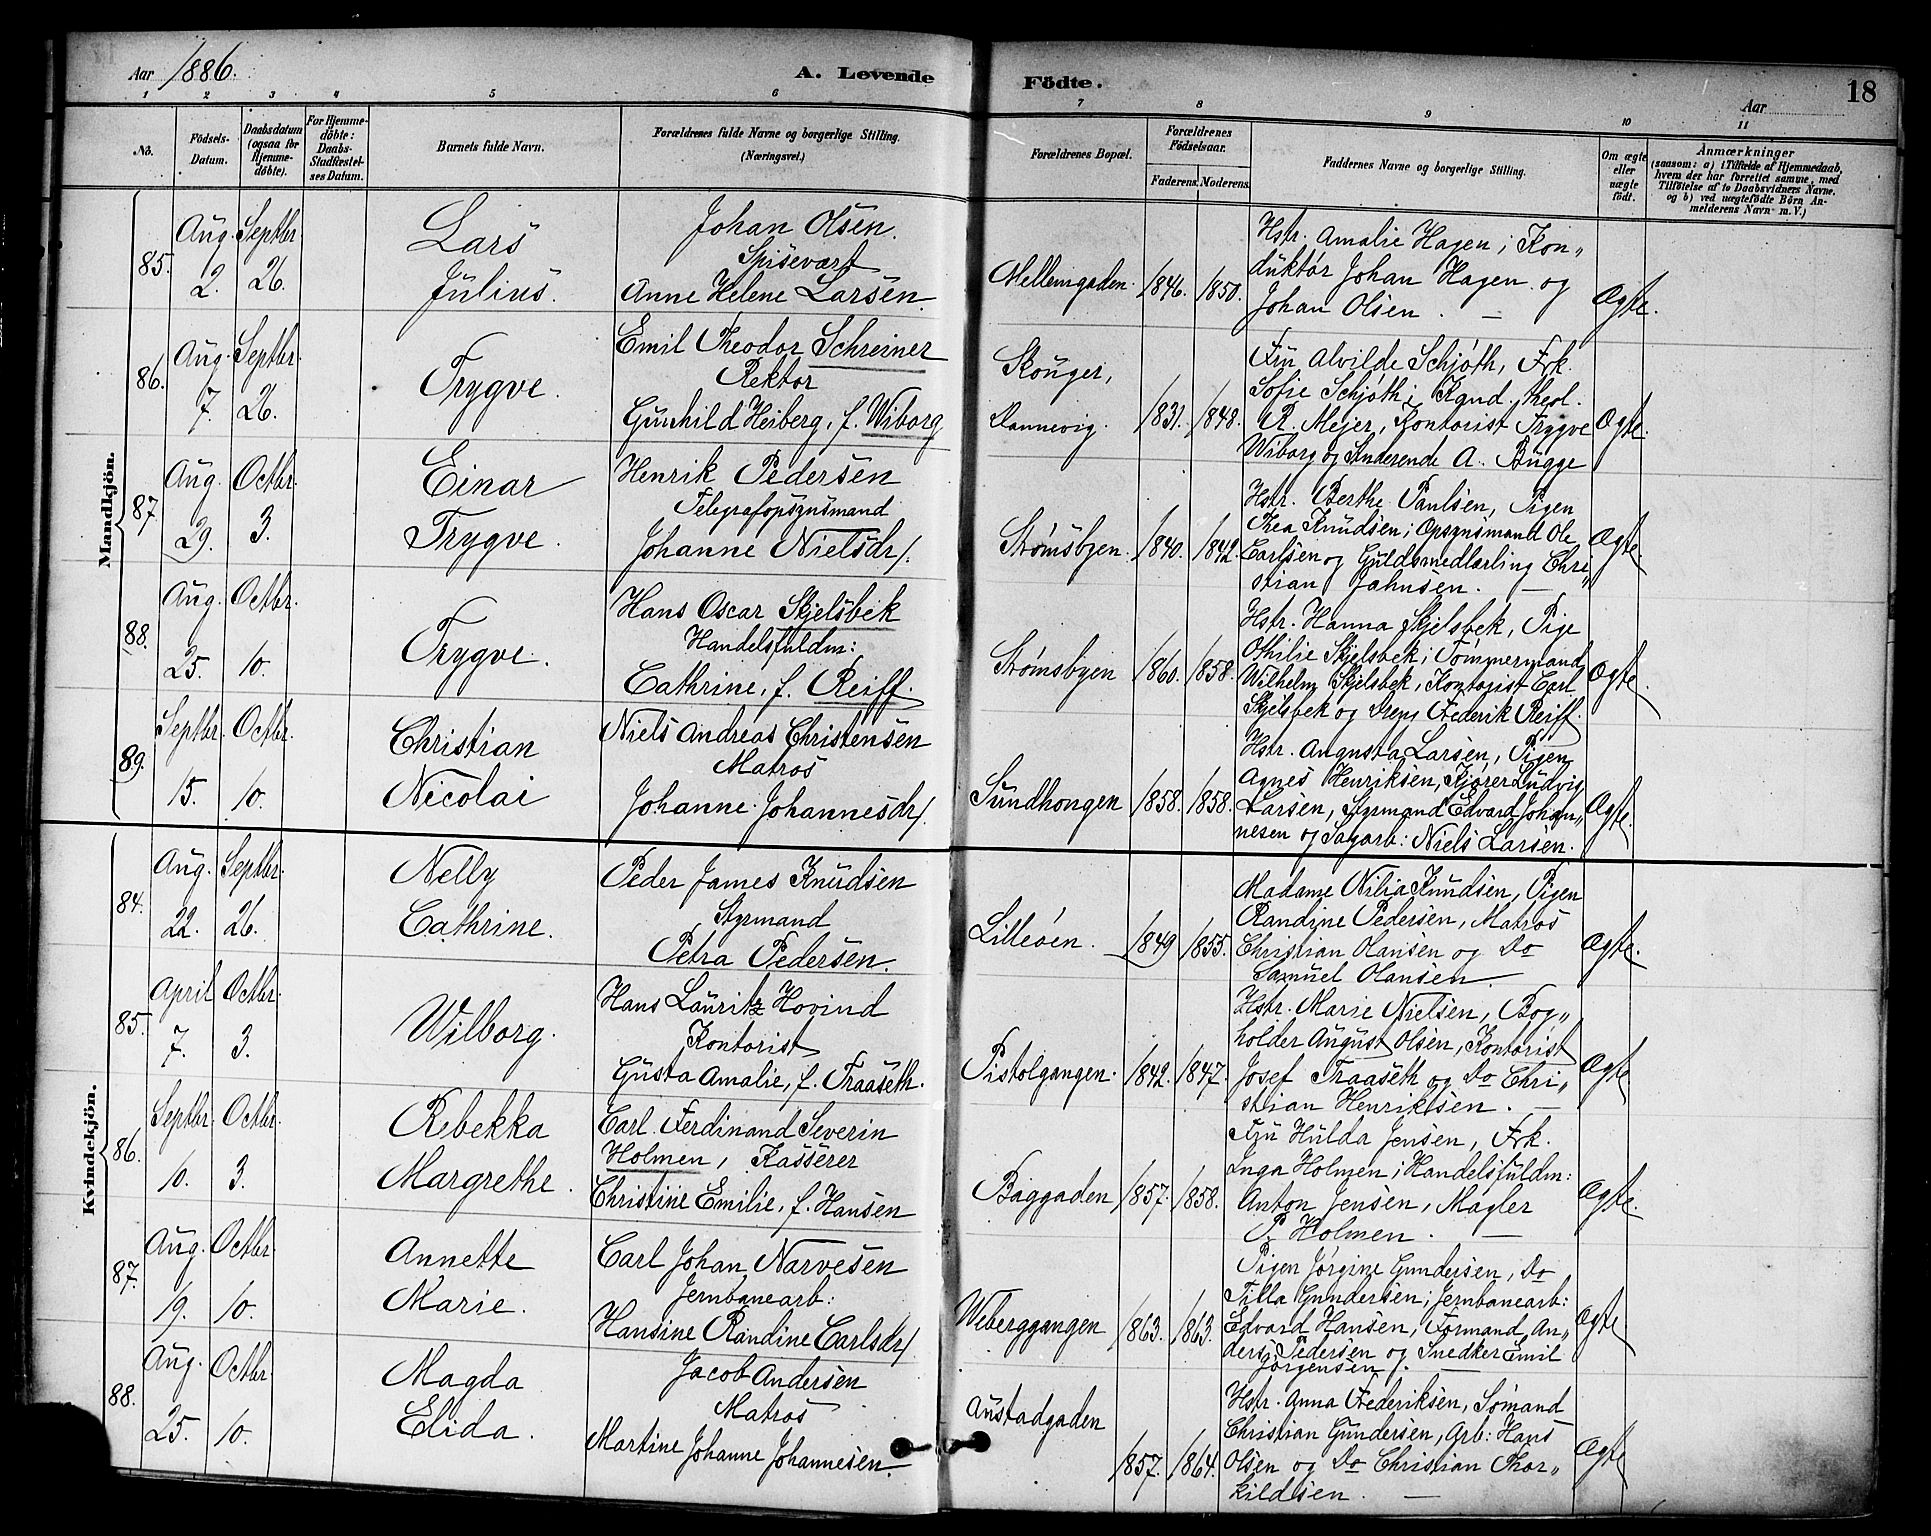 Aar 1886.
A. Levende
Födte.
Aar
18
1 2 3 4 5 6 7 8 9 10 11
No.
Födsels-Datum.
Daabsdatum (ogsaa for Hjemme-döbte).
For Hjemme-döbte: Daabs-Stadfæstel-ses Datum.
Barnets fulde Navn.
Forældrenes fulde Navne og borgerlige Stilling. (Næringsvei.)
Forældrenes Bopæl.
Forældrenes Födselsaar.
Faderens. Moderens.
Faddernes Navne og borgerlige Stilling.
Om ægte eller uægte födt.
Anmærkninger
(saasom: a) i Tilfælde af Hjemmedaab,
hvem der har forrettet samme, med
Tilföielse af to Daabsvidners Navne,
og b) ved uægtefödte Börn An-
melderens Navn m. V.)
Mandkjön.
85. Aug. 2. Septbr. 26.
Lars
Julius.
Johan Olsen.
Spisevært
Anne Helene Larsen
Mellemgaden. 1846. 1850.
Hstr. Amalie Hagen; Kon„
duktør Johan Hagen og
Johan Olsen. —
Ægte.
86. Aug. 7. Septbr. 26.
Trygve.
Emil Theodor Schreiner
Rektor
Gunhild Heiberg, f. Wiborg
Skouger,
Dannevig. 1831. 1848.
Fru Alvilde Schjøth, Frk.
Sofie Schjøth; Kand. theol.
R. Meijer, Kontorist Trygve
Wiborg og Studerende A. Bugge
Ægte.
87. Aug. 29. Octbr. 3.
Einar
Trygve.
Henrik Pedersen
Telegrafopsynsmand
Johanne Nielsdr/.
Strømsbyen. 1840. 1842.
Hstr. Berthe Paulsen, Pigen
Thea Knudsen; Opsynsmand Ole
Carlsen og Guldsmedlærling Chri„
stian Jahnsen. —
Ægte.
88. Aug. 25. Octbr. 10.
Trygve.
Hans Oscar Skjelsbek
Handelsfuldm:
Cathrine, f. Reiff.
Strømsbyen 1860. 1858.
Hstr. Hanna Skjelsbek, Pige
Othilie Skjelsbek; Tømmermand
Wilhelm Skjelsbek, Kontorist Carl
Skjelsbek og Dreng Frederik Reiff.
Ægte.
89. Septbr. 15. Octbr. 10.
Christian
Nicolai
Niels Andreas Christensen
Matros
Johanne Johannesdr/.
Sundhougen 1858. 1858.
Hstr. Augusta Larsen, Pigen
Agnes Henriksen, Kjører Ludvig
Larsen, Styrmand Edvard Johan„
nesen og Sagarb: Niels Larsen.
Ægte.
Kvindekjön.
84. Aug. 22. Septbr. 26.
Nelly
Cathrine.
Peder James Knudsen
Styrmand
Petra Pedersen.
Lilleøen. 1849 1855.
Madame Nilia Knudsen, Pigen
Randine Pedersen, Matros
Christian Olansen og Do
Samuel Olansen.
Ægte.
85. April 7. Octbr. 3.
Wilborg.
Hans Lauritz Hovind
Kontorist
Gusta Amalie, f. Traaseth.
Pistolgangen. 1842. 1847.
Hstr. Marie Nielsen, Bog„
holder August Olsen, Kontorist
Josef Traaseth og Do Chri„
stian Henriksen. —
Ægte.
86. Septbr. 10. Octbr. 3.
Rebekka
Margrethe.
Carl Ferdinand Severin
Holmen, Kasserer
Christine Emilie, f. Hansen
Baggaden 1857. 1858.
Fru Hulda Jensen, Frk.
Inga Holmen; Handelsfuldm:
Anton Jensen, Mægler
P. Holmen. —
Ægte.
87. Aug. 19. Octbr. 10.
Annette
Marie.
Carl Johan Narvesen
Jernbanearb:
Hansine Randine Carlsdr/
Weberggangen 1863. 1863.
Pigen Jørgine Gundersen, Do
Tilla Gundersen; Jernbanearb:
Edvard Hansen, Formand An„
ders Pedersen og Snedker Emil
Jørgensen. —
Ægte
88. Aug. 25. Octbr. 10.
Magda
Elida.
Jacob Andersen
Matros
Martine Johanne Johannesen.
Austadgaden
1857. 1864.
Hstr. Anna Frederiksen, Sømand
Christian Gundersen, Arb: Hans
Olsen og Do Christian Thor„
kildsen. —
Ægte